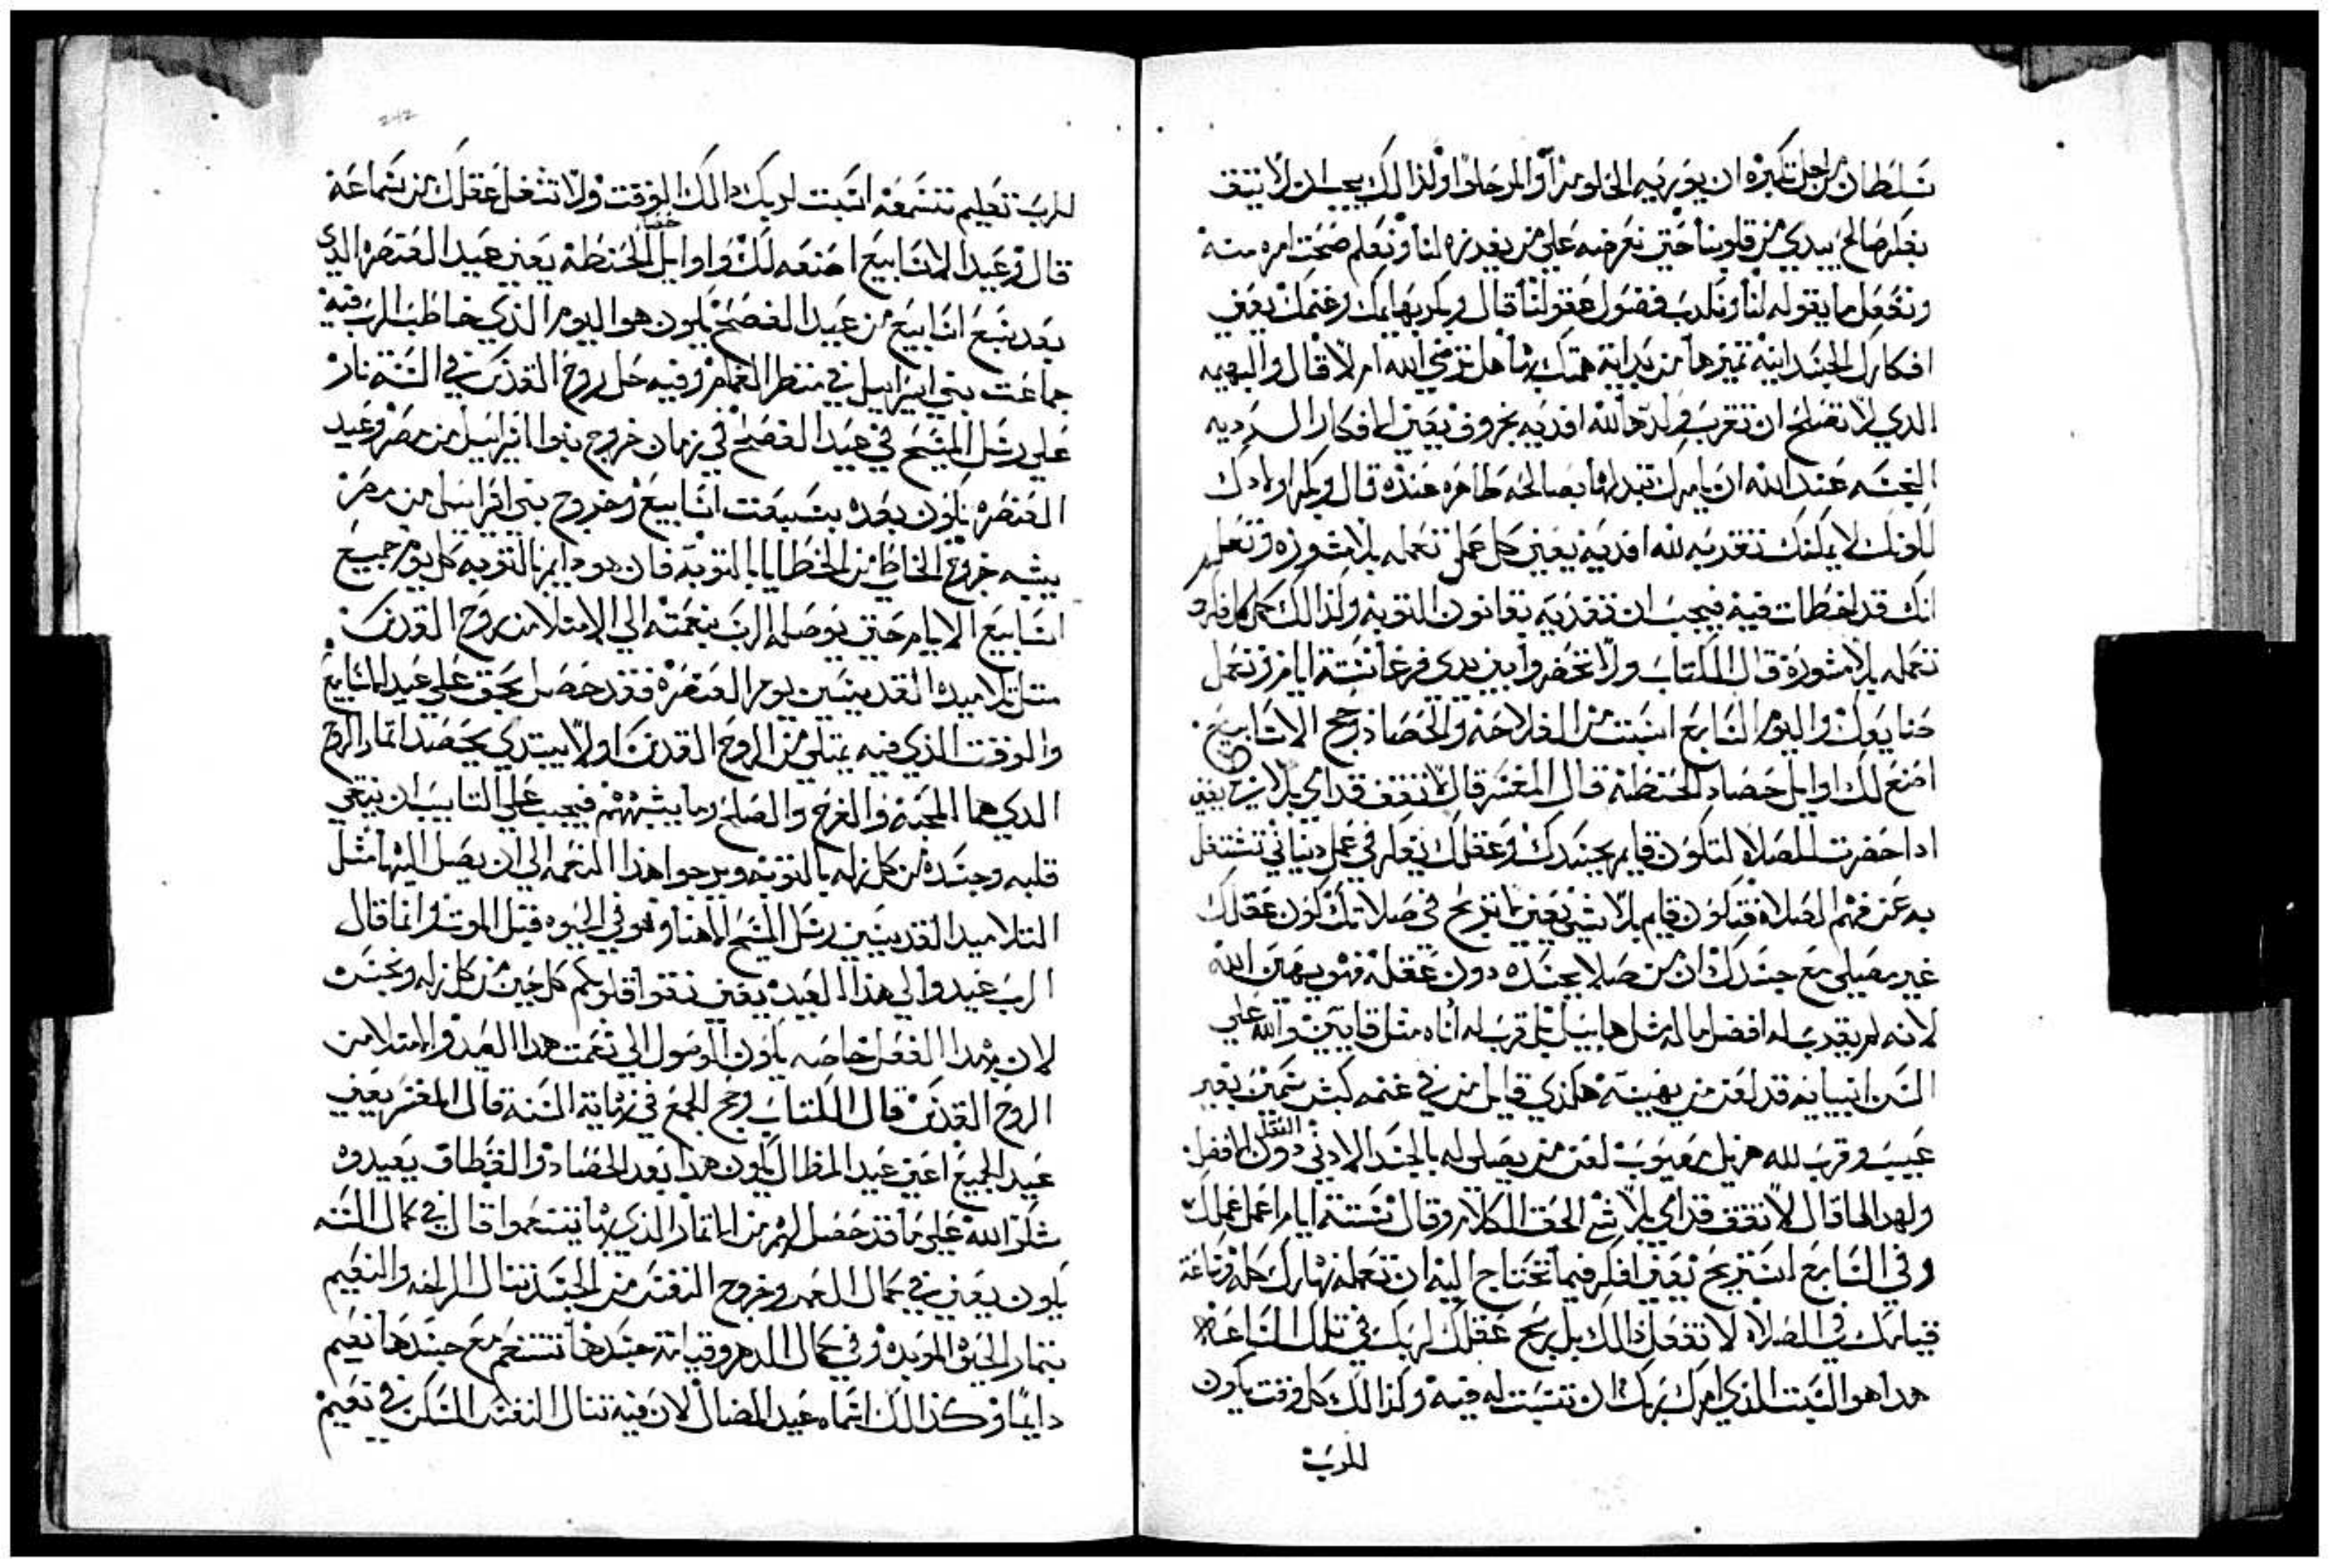 تسلطان من اجل تكبره ان يوريه الحلو مرا والمر حلوا ولذالك يجب ان لا نتق
بفكر صالح يبدي من قلوبنا حتي نعرضه علي من يفرزه لنا ونعلم صحت امره منه
ونفعل ما يقوله لنا ونكدب فضول عقولنا قال وبكر بهايمك وغنمك يعني
افكارك الجسدانيه تميزها من بداية همتك بها هل ترضي الله ام لا قال والبهيمه
الدي لا تصلح ان تقرب قربان لله افديه بخروف يعني الافكار الرديه
النجسه عند الله ان يامرك تبدلها بصالحه طاهره عنده قال وبكر اولادك
لكونك لا يمكنك تقدمه لله افديه يعني كل عمل تعمله بلا مشوره وتعلم
انك قد اخطات فيه فيجب ان تفديه بقانون التوبه ولذالك كل فكر
تعمله بلا مشورة قال الكتاب ولا تحضروا بين يدي فرغا ستة ايام تعمل
صنايعك واليوم السابع اسبت من الفلاحه والحصاد وحج الاسابيع
اصنع لك اوايل حصاد الحنطه قال المفسر قال لا تقف قدامي بلا شي يعني
ادا حضرت للصلاه لتكون قايم بجسدك وعقلك يفكر في عمل دنياني تشتغل
به عن فهم الصلاة فتكون قايم بلا شي يعني ما تربح في صلاتك كون عقلك
غير مصلي مع جسدك ان من صلا بجسده دون عقله فهو يهين الله
لانه لم يقدم له افضل ماله مثل هابيل بل قرب له اناه مثل قايين والله علي
السن انبيايه قد لعن من يهينه هكذي قايل من في غنمه كبش سمين بغير
عيب وقرب لله هزيل معيوب لعن من يصلي له بالجسد الادني دون العقل الافضل
ولهدا لما قال لا تقف قدامي بلا شي الحق الكلام وقال ستة ايام اعمل عملك
وفي السابع استريح يعني افكر فيما تحتاج اليه ان تعمله نهارك كله وساعة
قيامك في الصلاة لا تفعل ذالك بل ريح عقلك لربك في تلك الساعه
هدا هو السبت الذي امرك ربك ان تسبت له فيه وكذالك كل وقت يكون
للرب
للرب تعليم تسمعه اسبت لربك ذالك الوقت ولا تشغل عقلك من سماعه
قال وعيد الاسابيع اصنعه لك واوايل حصاد الحنطه يعني عيد العنصره الذي
بعد سبع اسابيع من عيد الفصح يكون هو اليوم الذي خاطب الرب فيه
جماعت بني اسراييل في منظر الغمام وفيه حل روح القدس في السنة نار
علي رسل المسيح في عيد الفصح في زمان خروج بنو اسراييل من مصر وعيد
العنصره يكون بعده بسبعت اسابيع وخروج بني اسراييل من مصر
يشبه خروج الخاطي من الخطايا بالتوبه فان هو دايم بالتوبه كل يوم جميع
اسابيع الايام حتي يوصله الرب بنعمته الي الامتلا من روح القدس
متل تلاميده القديسين يوم العنصره فقد حصل بحق علي عيد الاسابيع
والوقت الذي فيه يمتلي من الروح القدس اولا يبتدي يحصد اتمار الروح
الدي هما المحبه والفرح والصلح وما يشبههم فيجب علي التايب ان ينقي
قلبه وجسده من كل زله بالتوبه ويرجوا هذا النعمه الي ان يصل اليها مثل
التلاميد القديسين رسل المسيح الاهنا وهو في الحيوه قبل الموت وانما قال
الرب عيدوا لي هذا العيد يعني نقوا قلوبكم كل حين من كل زله ونجس
لان بهدا الفعل خاصه يكون الوصول الي نعمت هدا العيد والامتلا من
الروح القدس قال الكتاب وحج الجمع في نهاية السنة قال المفسر يعني
عيد الجميع اعني عيد المظال يكون هدا بعد الحصاد والقطاف يعيدوه
شكر الله علي ما قد حصل لهم من الاتمار الذي بها يتنعموا قال في كمال السنه
يكون يعني في كمال العمر وخروج النفس من الجسد تنال الراحه والنعيم
بتمار الحيوه الموبده وفي كمال الدهر وقيامة جسدها تتنعم مع جسدها نعيم
دايما وكذالك اسماه عيد المضال لان فيه تنال النفس السكن في نعيم